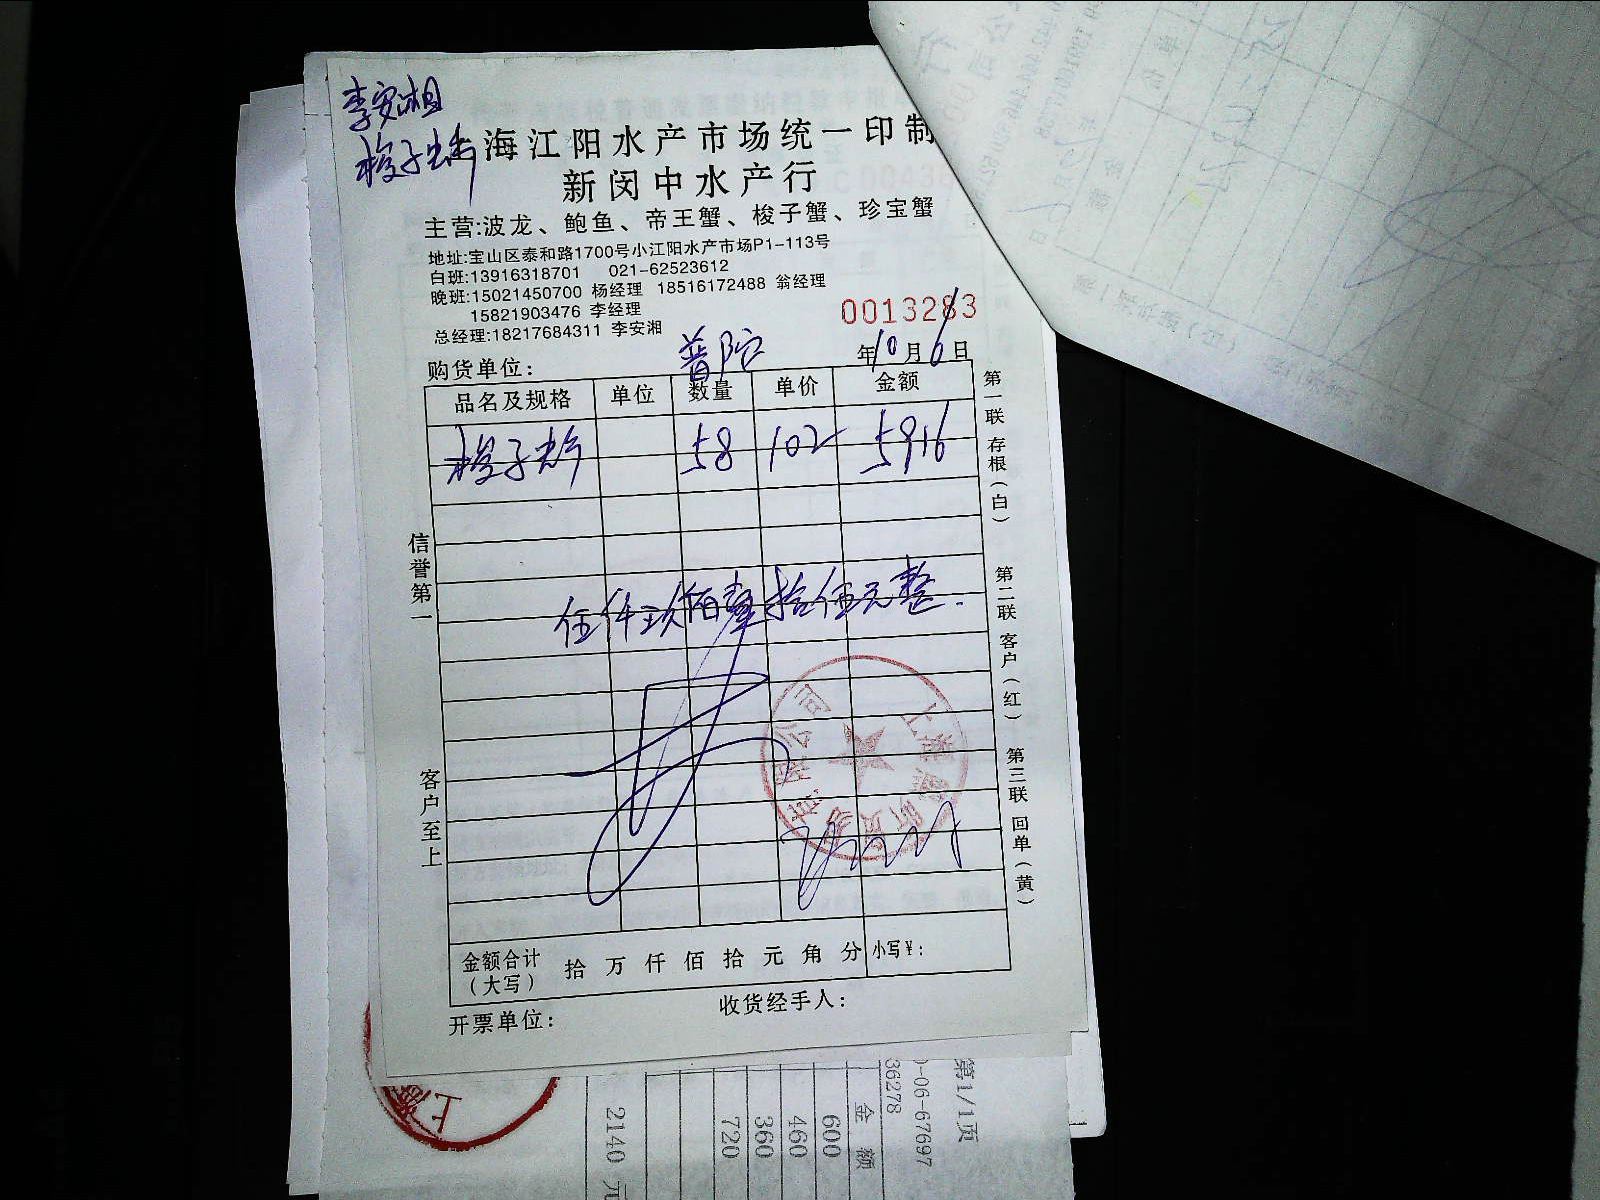 李安湘
梭子蟹
上海江阳水产市场统一印制
新闵中水产行
主营:波龙、鲍鱼、帝王蟹、梭子蟹、珍宝蟹
地址:宝山区泰和路1700号小江阳水产市场P1-113号
白班:13916318701 021-62523612
晚班:15021450700 杨经理 18516172488 翁经理
15821903476 李经理
总经理:18217684311 李安湘
0013283
购货单位: 普陀 年10月6日
品名及规格 单位 数量 单价 金额
梭子蟹 58 102 5916
伍仟玖佰壹拾伍元整.
信誉第一
客户至上
第一联 存根(白)
第二联 客户(红)
第三联 回单(黄)
金额合计
(大写)
拾 万 仟 佰 拾 元 角 分 小写¥:
开票单位: 收货经手人:
第1/1页
-06-67697
36278
金 额
600
460
360
720
2140 元
上海